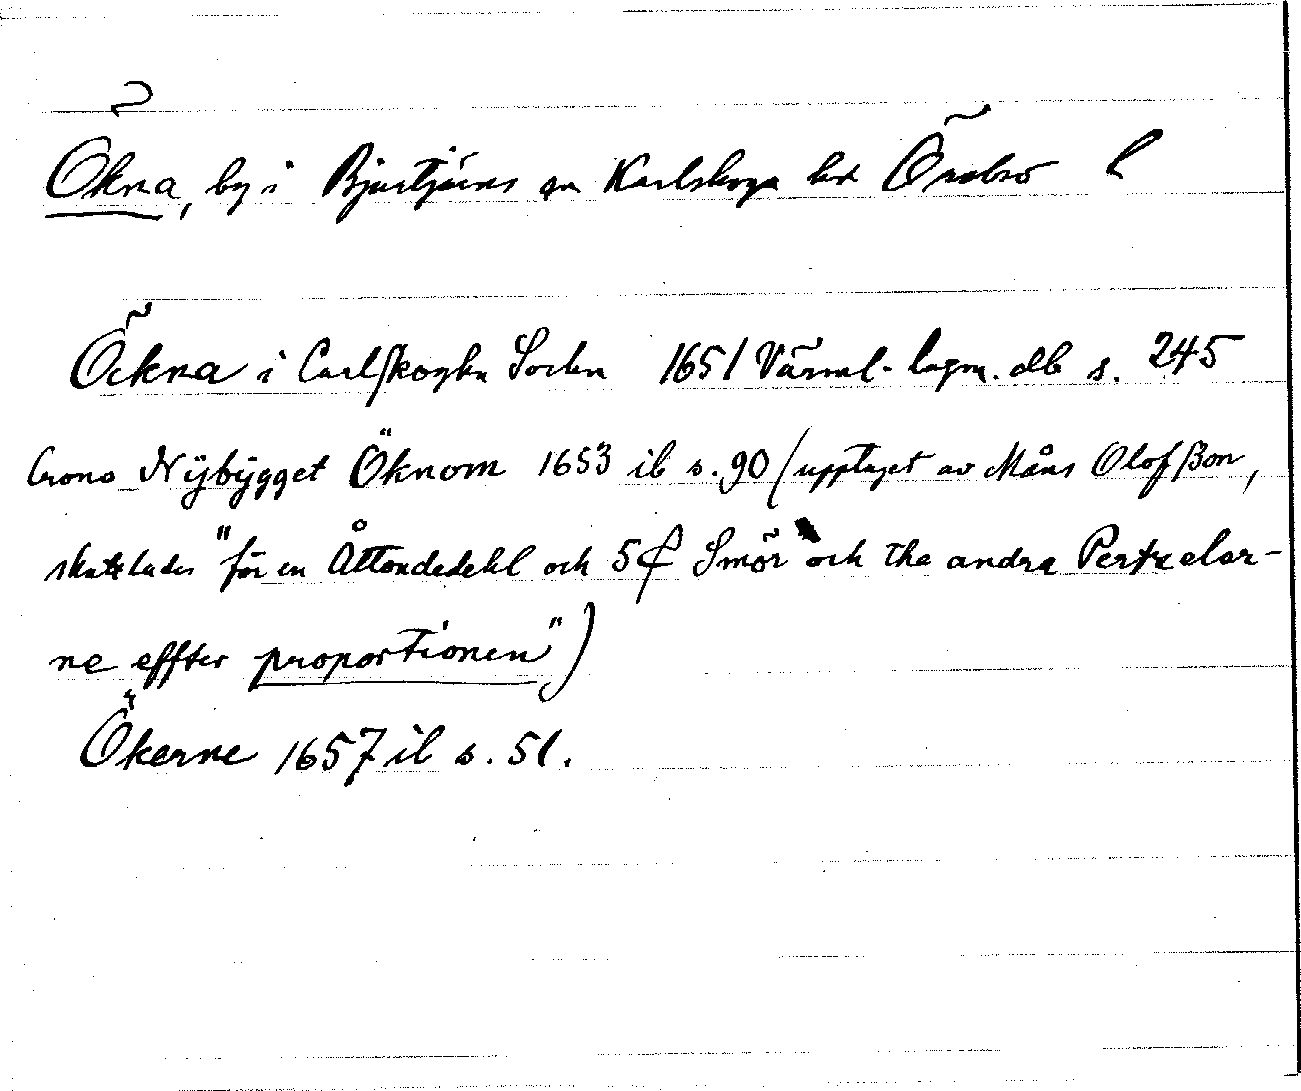 Ökna, by i Bjurtjärns sn Karlskoga hd Örebro l
Öckna i Carlskogha Sochn 1651 Värml. lagm. db s. 245
Crono Nÿbÿgget Öknom 1653 ib s. 90 (upptaget av Måns Olofsson,
skattlades "för en Åttondedehl och 5 ₡ Smör och the andra Perselar-
ne effter proportionen")
Ökerne 1657 ib s. 51.